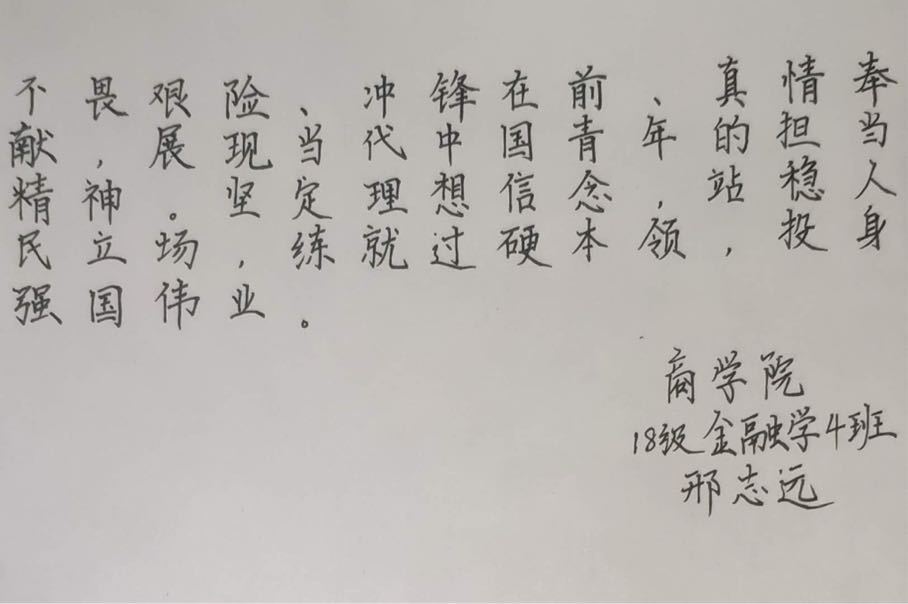 不畏艰险、冲锋在前、真情奉
献，展现当代中国青年的担当
精神。坚定理想信念，站稳人
民立场，练就过硬本领，投身
强国伟业。
商学院
18级金融学4班
邢志远